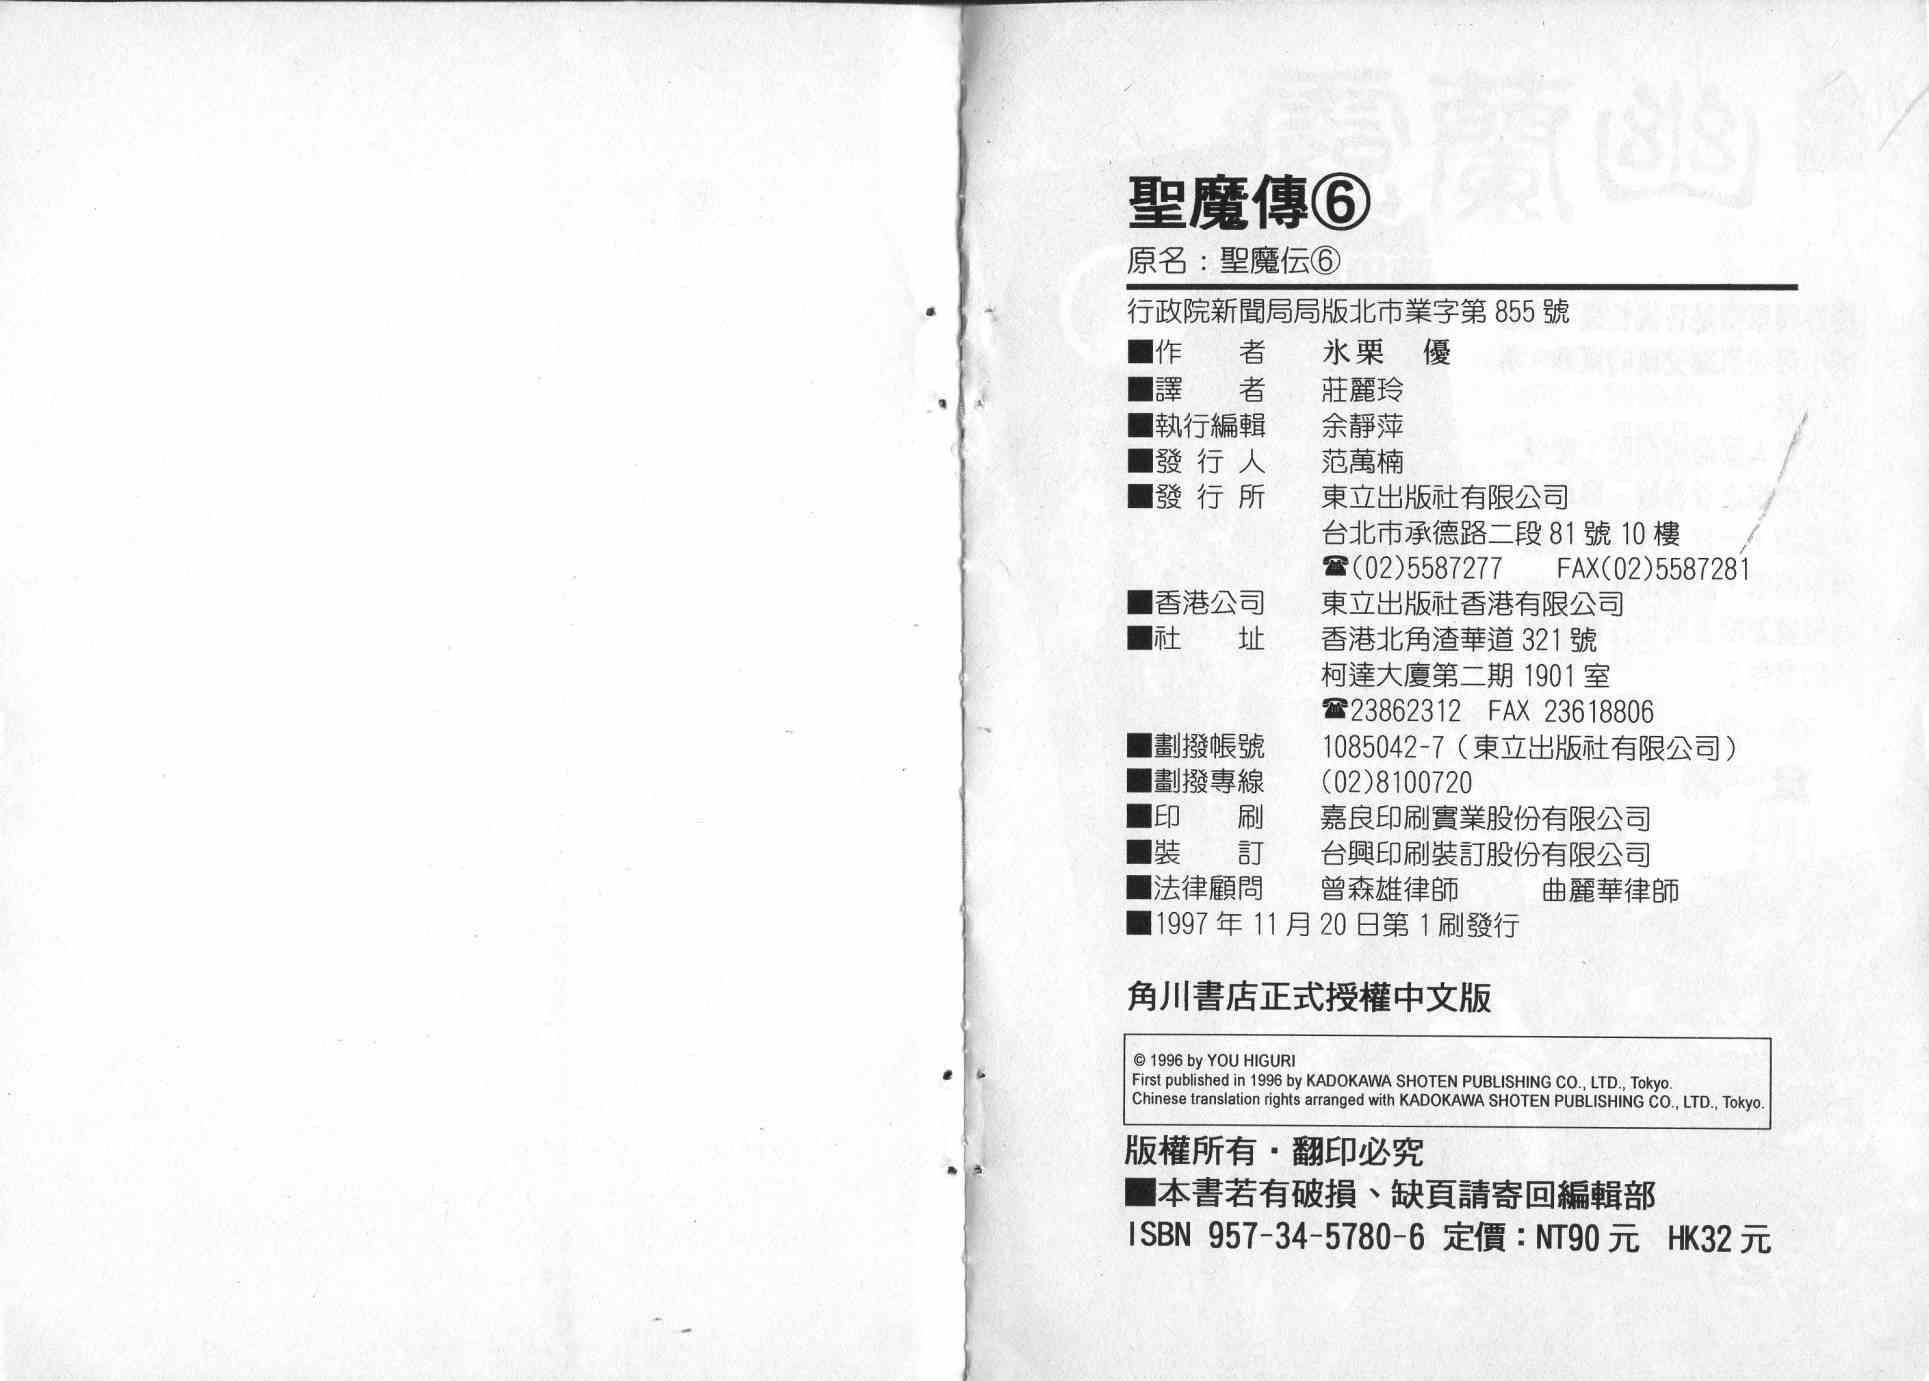 聖魔傳⑥
原名：聖魔伝⑥
行政院新聞局局版北市業字第 855 號
■作　　者　　氷栗　優
■譯　　者　　莊麗玲
■執行編輯　　余靜萍
■發 行 人　　范萬楠
■發 行 所　　東立出版社有限公司
台北市承德路二段 81 號 10 樓
☎(02)5587277　　FAX(02)5587281
■香港公司　　東立出版社香港有限公司
■社　　址　　香港北角渣華道 321 號
柯達大廈第二期 1901 室
☎23862312　FAX 23618806
■劃撥帳號　　1085042-7（東立出版社有限公司）
■劃撥專線　　(02)8100720
■印　　刷　　嘉良印刷實業股份有限公司
■裝　　訂　　台興印刷裝訂股份有限公司
■法律顧問　　曾森雄律師　　　曲麗華律師
■1997 年 11 月 20 日第 1 刷發行
角川書店正式授權中文版
© 1996 by YOU HIGURI
First published in 1996 by KADOKAWA SHOTEN PUBLISHING CO., LTD., Tokyo.
Chinese translation rights arranged with KADOKAWA SHOTEN PUBLISHING CO., LTD., Tokyo.
版權所有・翻印必究
■本書若有破損、缺頁請寄回編輯部
ISBN 957-34-5780-6 定價：NT90 元　HK32 元